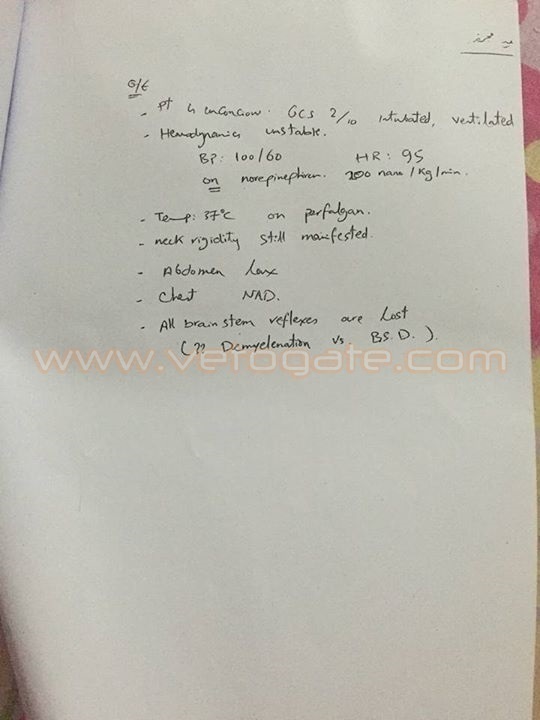 G/E
- Pt is unconcious. GCS 2/10 intubated, ventilated
- Hemodynamics unstable.
BP: 100/60 HR: 95
on norepinephrin. 200 nano/kg/min.
- Temp: 37°C on perfalgan.
- neck rigidity still manifested.
- Abdomen lax
- Chest NAD.
- All brain stem reflexes are lost
(?? Demyelenation vs. B.S.D.).
www.verogate.com